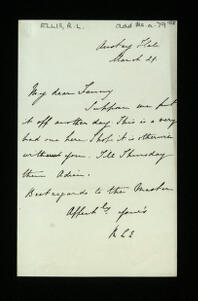 ELLIS, R.L. Add. Ms. a. 79
Anstey Hall
March 29.
My dear Fanny
Suppose we put
it off another day. This is a very
bad one here I hope it is otherwise
with you. Till Thursday
then Adieu.
Best regards to the Master
Affectly yours
R L E